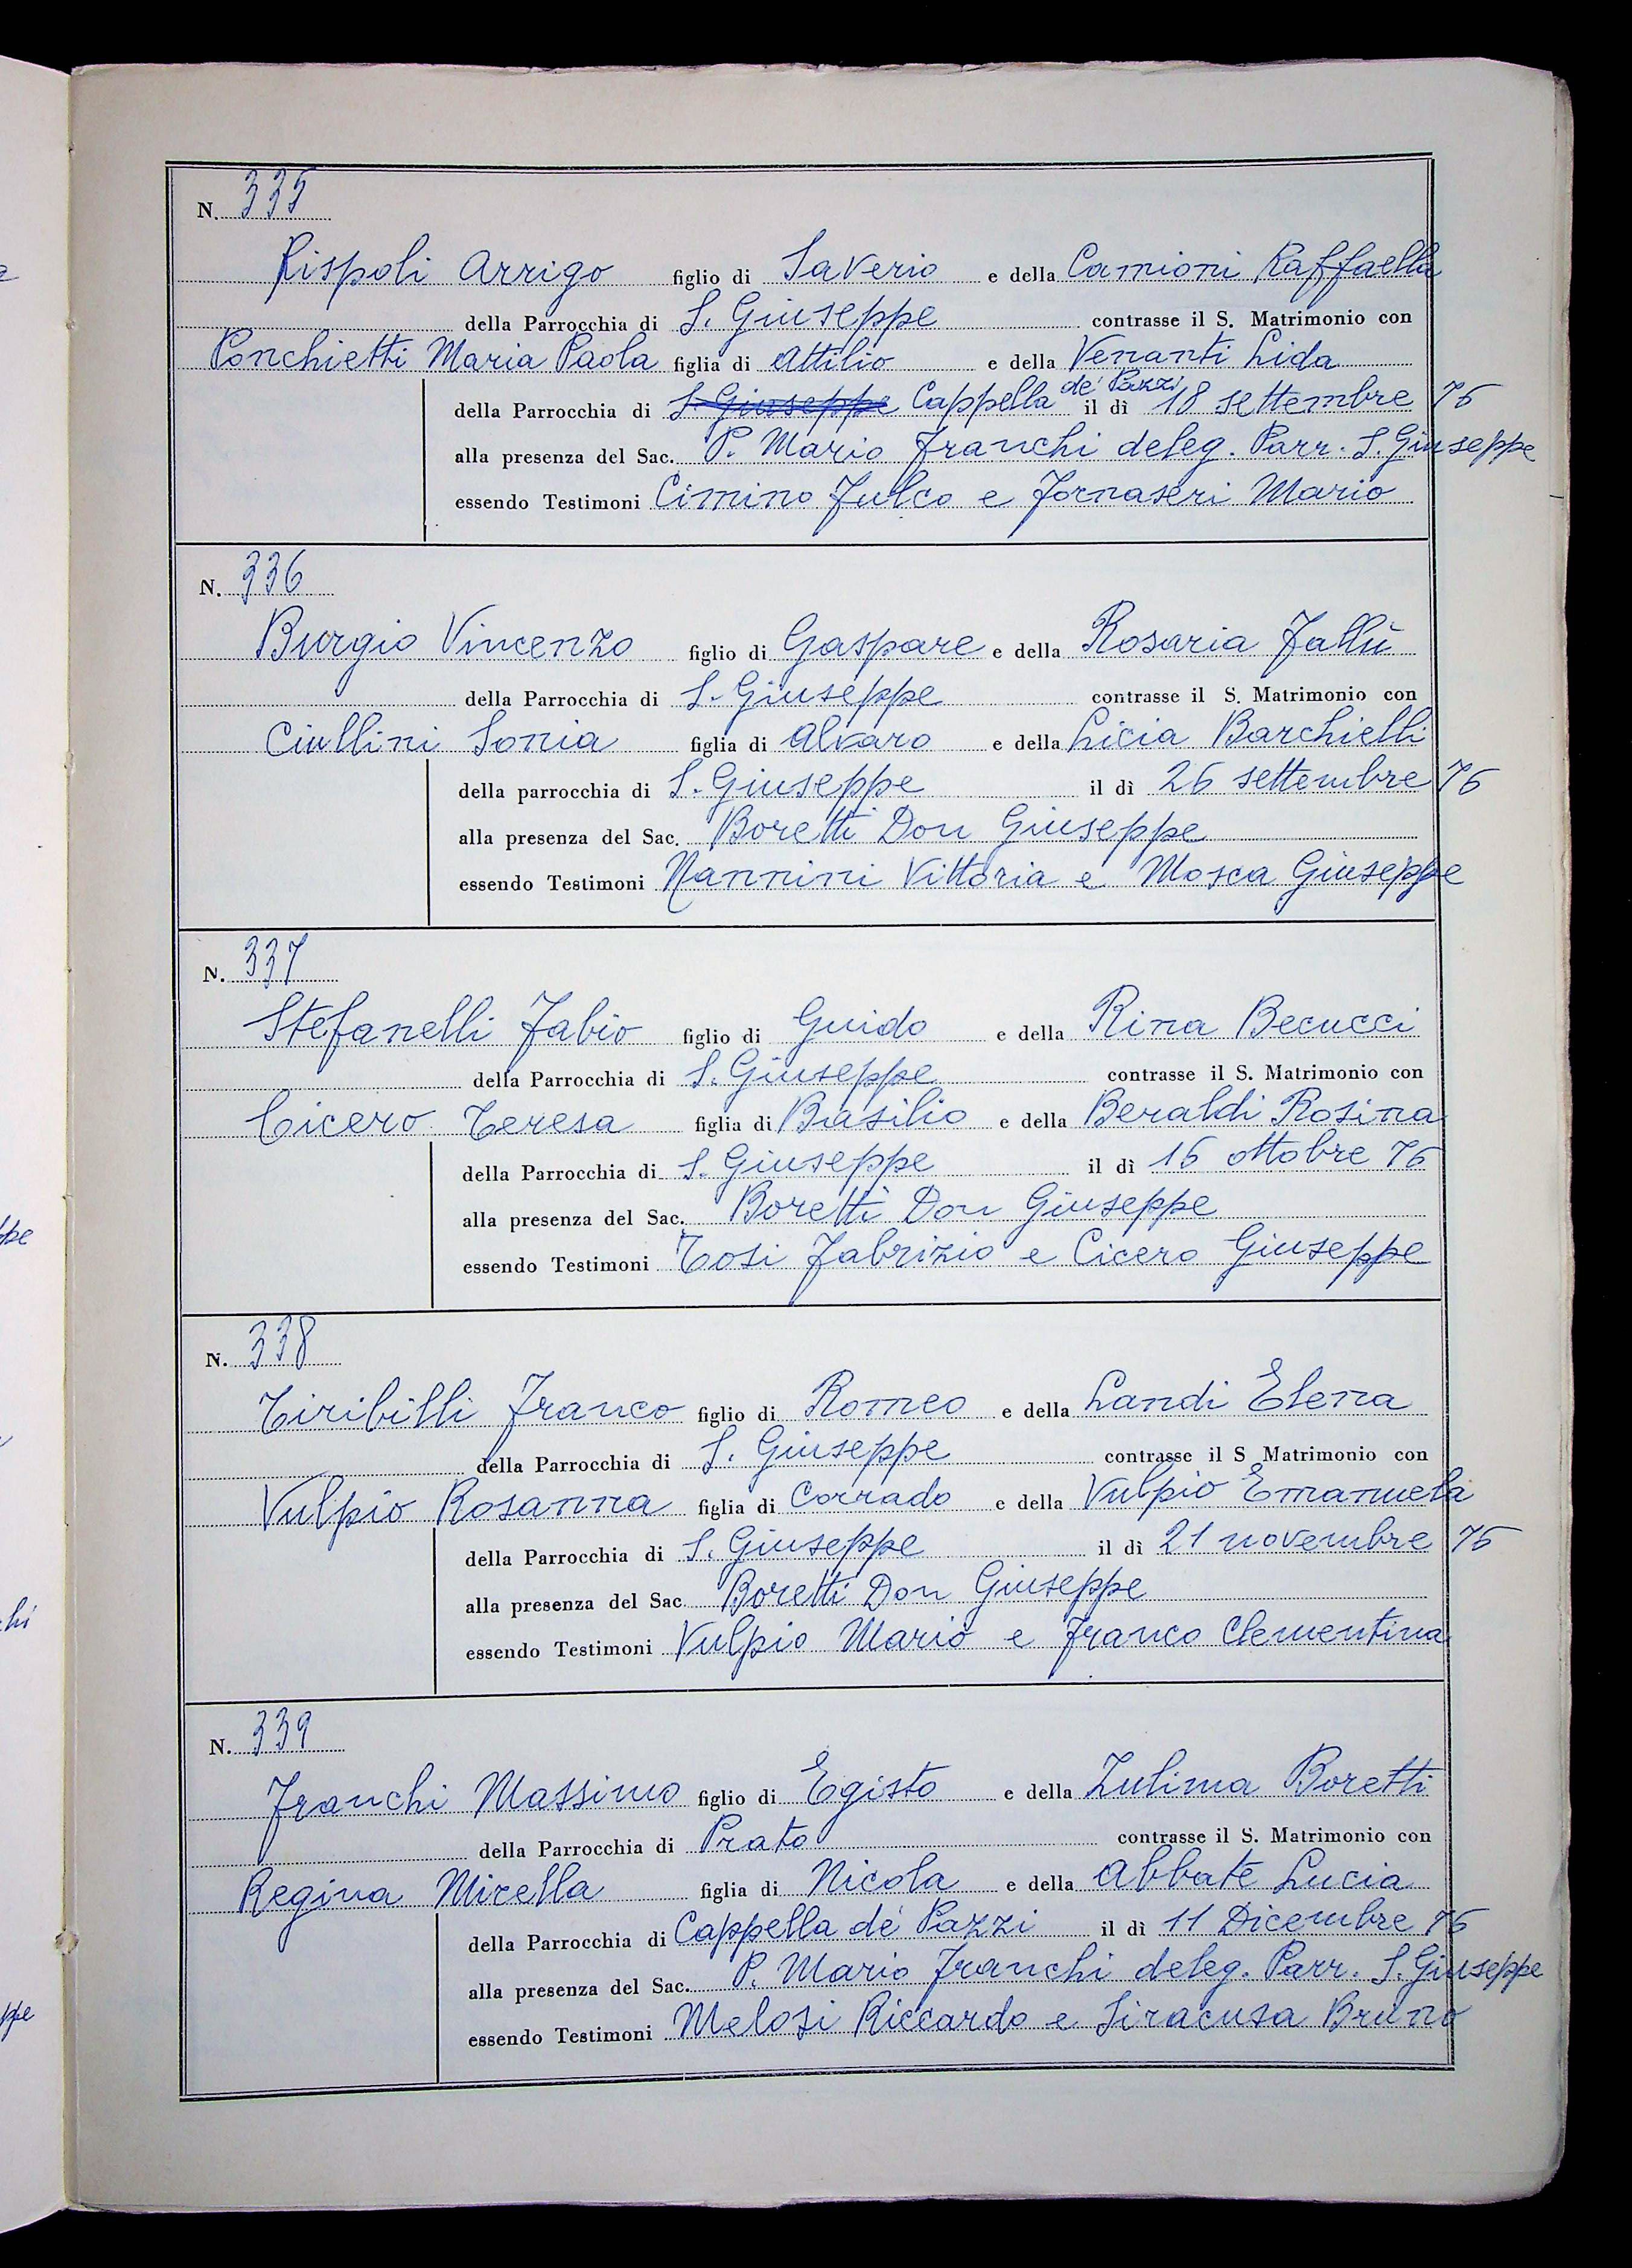 N. 335
Rispoli Arrigo figlio di Saverio e della Camioni Raffaella
della Parrocchia di S. Giuseppe contrasse il S. Matrimonio con
Ponchietti Maria Paola figlia di Attilio e della Venanti Lida
della Parrocchia di S. Giuseppe Cappella de' Pazzi il dì 18 settembre 76
alla presenza del Sac. P. Mario Franchi deleg. Parr. S. Giuseppe
essendo Testimoni Cimino Fulco e Fornaseri Mario
N. 336
Burgio Vincenzo figlio di Gaspare e della Rosaria Fallù
della Parrocchia di S. Giuseppe contrasse il S. Matrimonio con
Ciullini Sonia figlia di Alvaro e della Licia Barchielli
della parrocchia di S. Giuseppe il dì 26 settembre 76
alla presenza del Sac. Boretti Don Giuseppe
essendo Testimoni Nannini Vittoria e Mosca Giuseppe
N. 337
Stefanelli Fabio figlio di Guido e della Rina Becucci
della Parrocchia di S. Giuseppe contrasse il S. Matrimonio con
Cicero Teresa figlia di Basilio e della Beraldi Rosina
della Parrocchia di S. Giuseppe il dì 16 ottobre 76
alla presenza del Sac. Boretti Don Giuseppe
essendo Testimoni Tosi Fabrizio e Cicero Giuseppe
N. 338
Tiribilli Franco figlio di Romeo e della Landi Elena
della Parrocchia di S. Giuseppe contrasse il S Matrimonio con
Vulpio Rosanna figlia di Corrado e della Vulpio Emanuela
della Parrocchia di S. Giuseppe il dì 21 novembre 76
alla presenza del Sac. Boretti Don Giuseppe
essendo Testimoni Vulpio Mario e Franco Clementina
N. 339
Franchi Massimo figlio di Egisto e della Zulima Boretti
della Parrocchia di Prato contrasse il S. Matrimonio con
Regina Mirella figlia di Nicola e della Abbate Lucia
della Parrocchia di Cappella de' Pazzi il dì 11 Dicembre 76
alla presenza del Sac. P. Mario Franchi deleg. Parr. S. Giuseppe
essendo Testimoni Melosi Riccardo e Siracusa Bruno